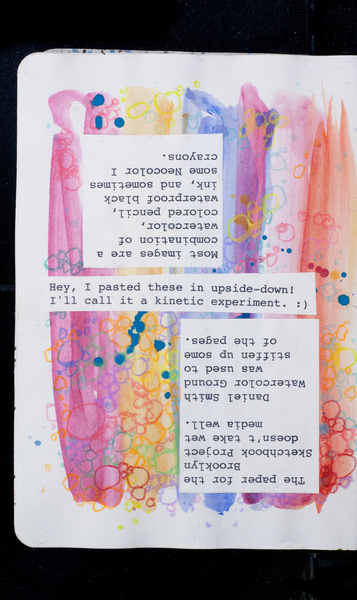 Most images are a
combination of
watercolor,
colored pencil,
waterproof black
ink, and sometimes
some Neocolor I
crayons.
Hey, I pasted these in upside-down!
I'll call it a kinetic experiment. :)
The paper for the
Brooklyn
Sketchbook Project
doesn't take wet
media well.
Daniel Smith
Watercolor Ground
was used to
stiffen up some
of the pages.